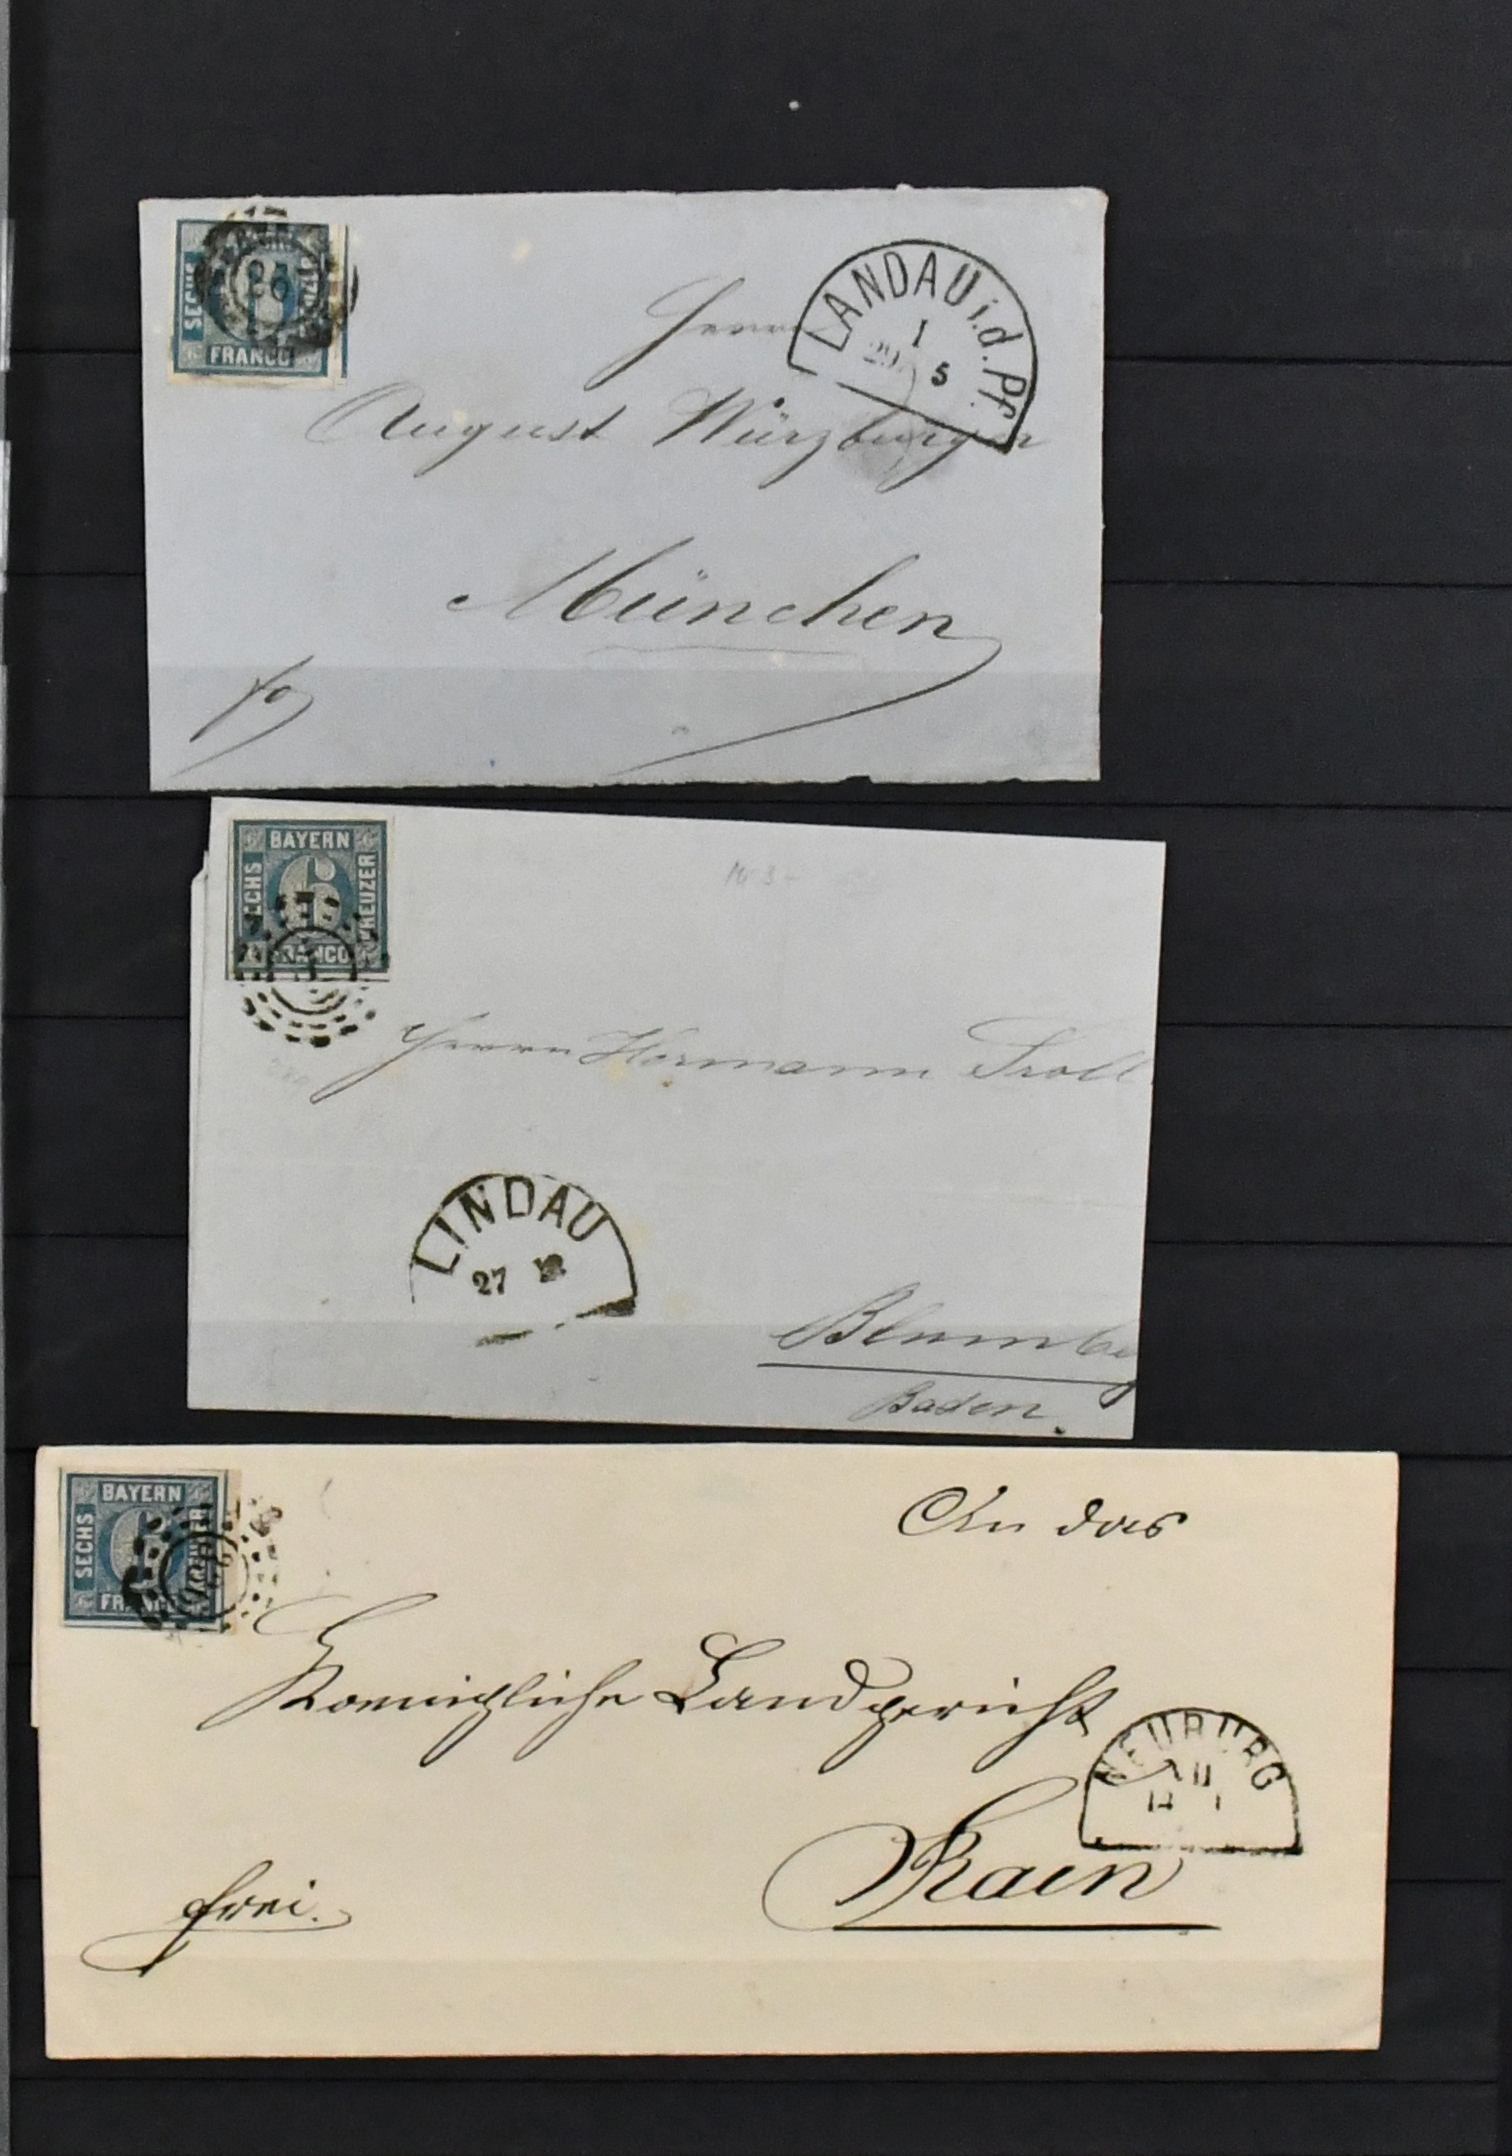 SECHS
FRANCO
LANDAU i.d. Pf.
1
29 5
Herrn
August Würzburger
München
BAYERN
SECHS 6 KREUZER
FRANCO
Herrn Hermann Troll
LINDAU
27 12
Blumbe
Baden.
BAYERN
SECHS 6
An das
Koenigliche Landgericht
NEUBURG
Rain
frei.